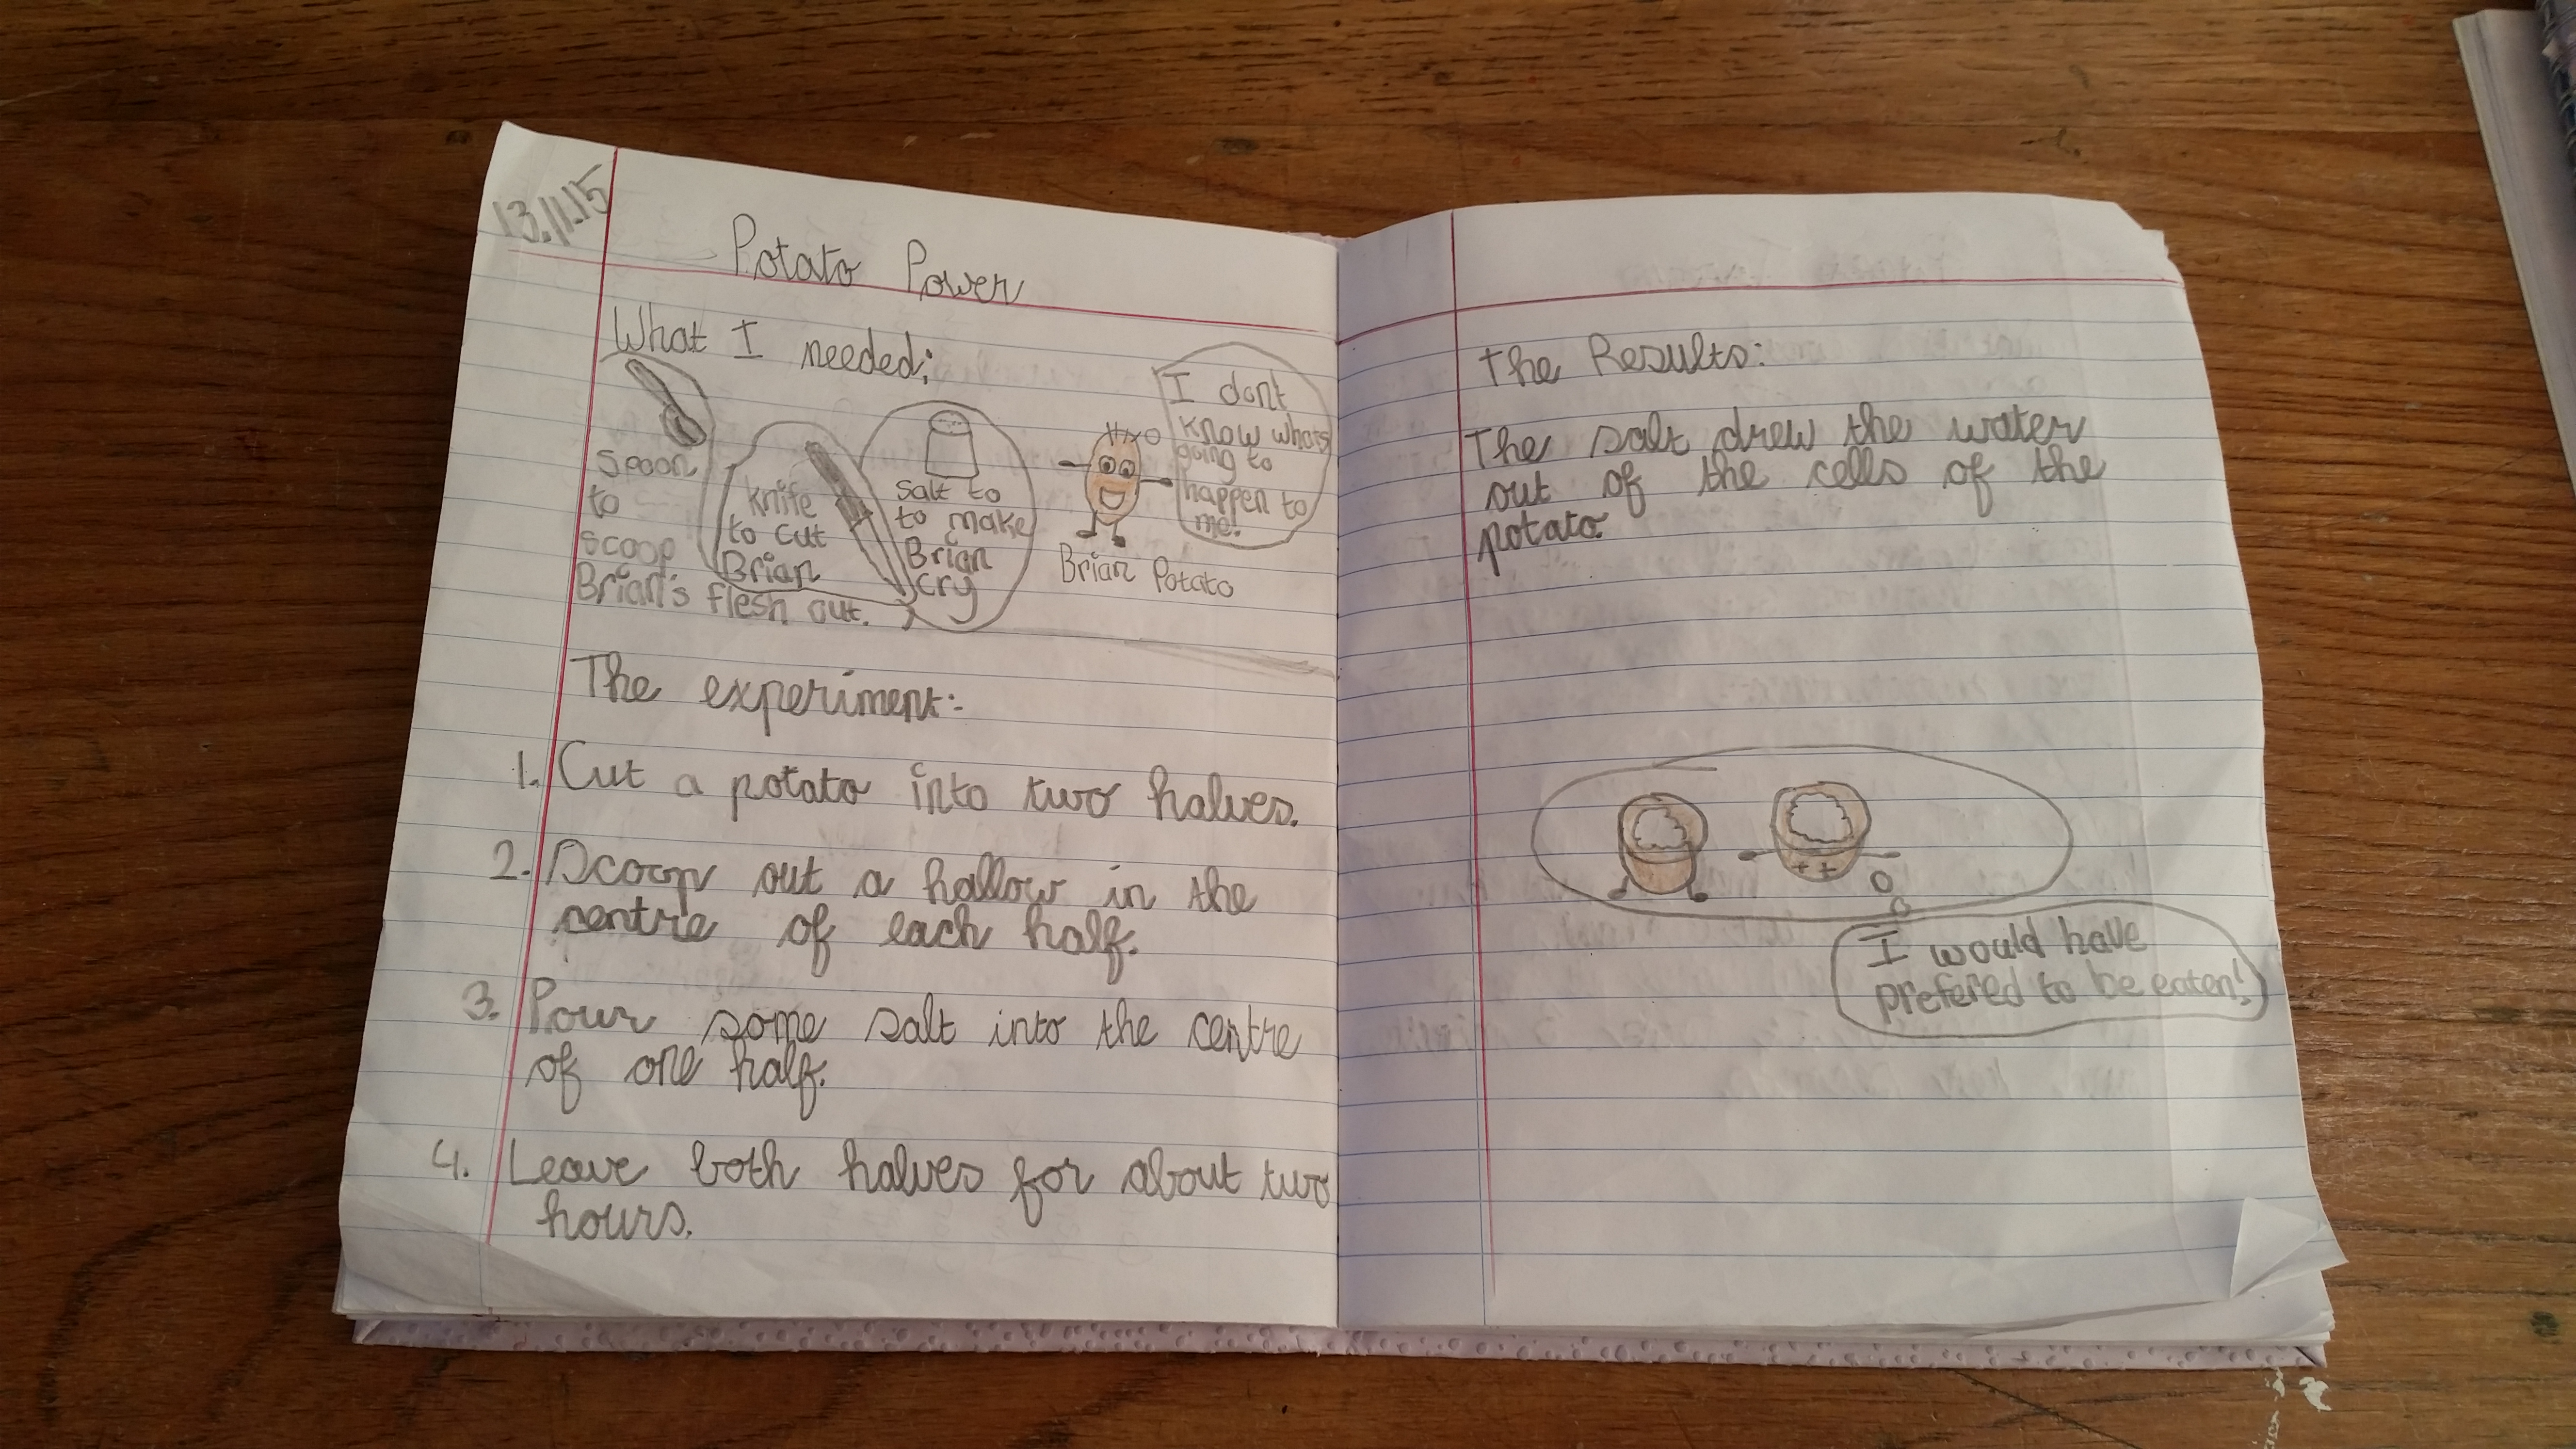 13.11.15
Potato Power
What I needed:
Spoon
to
scoop
Brian's flesh out.
knife
to cut
Brian
salt to
to make
Brian
cry
I dont
know whats
going to
happen to
me!
Brian Potato
The experiment:-
1. Cut a potato into two halves.
2. Scoop out a hallow in the
centre of each half.
3. Pour some salt into the centre
of one half.
4. Leave both halves for about two
hours.
The Results:
The salt drew the water
out of the cells of the
potato.
I would have
prefered to be eaten!